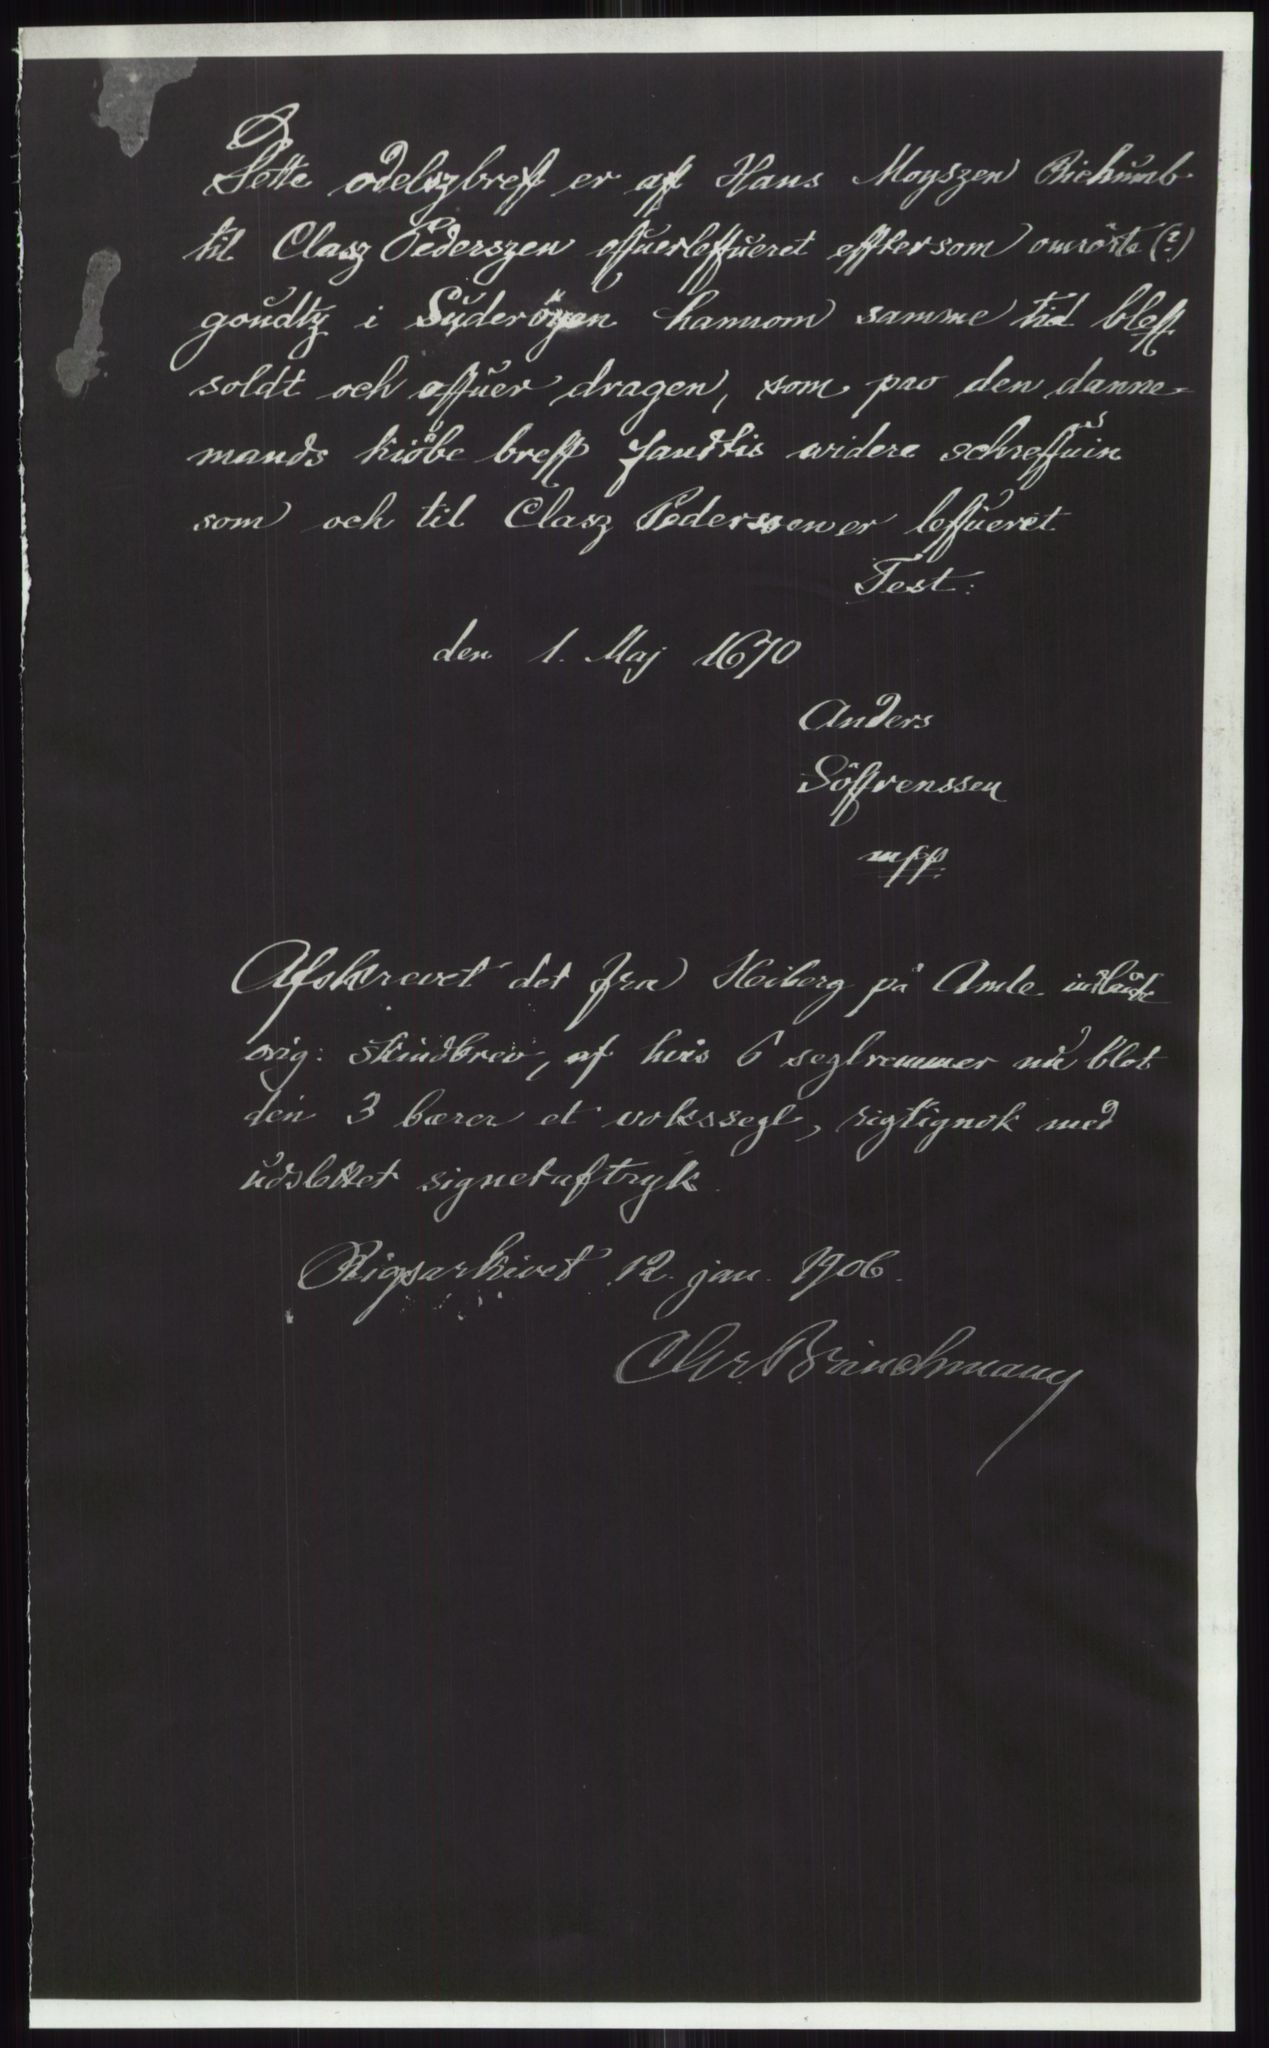 Dette odelszbreff er aff Hans Moyszen Richumb
til Clasz Pederszen offuerleffueret efftersom omrörte (?)
goudtz i Suderöyen hannom samme tid bleff
soldt och offuer dragen, som pao den danne-
mands kiöbe breff findtis widere schreffuin
som och til Clasz Pederssen er leffueret
Test:
den 1. Maj 1670
Anders
Söffrenssen
mpp.
Afskrevet det fra Heiberg på Amle indlånte
orig: skindbrev, af hvis 6 seglremmer nu blot
den 3 bærer et vokssegl, rigtignok med
udslettet signetaftryk.
Rigsarkivet 12. jan. 1906.
Chr. Brinchmann